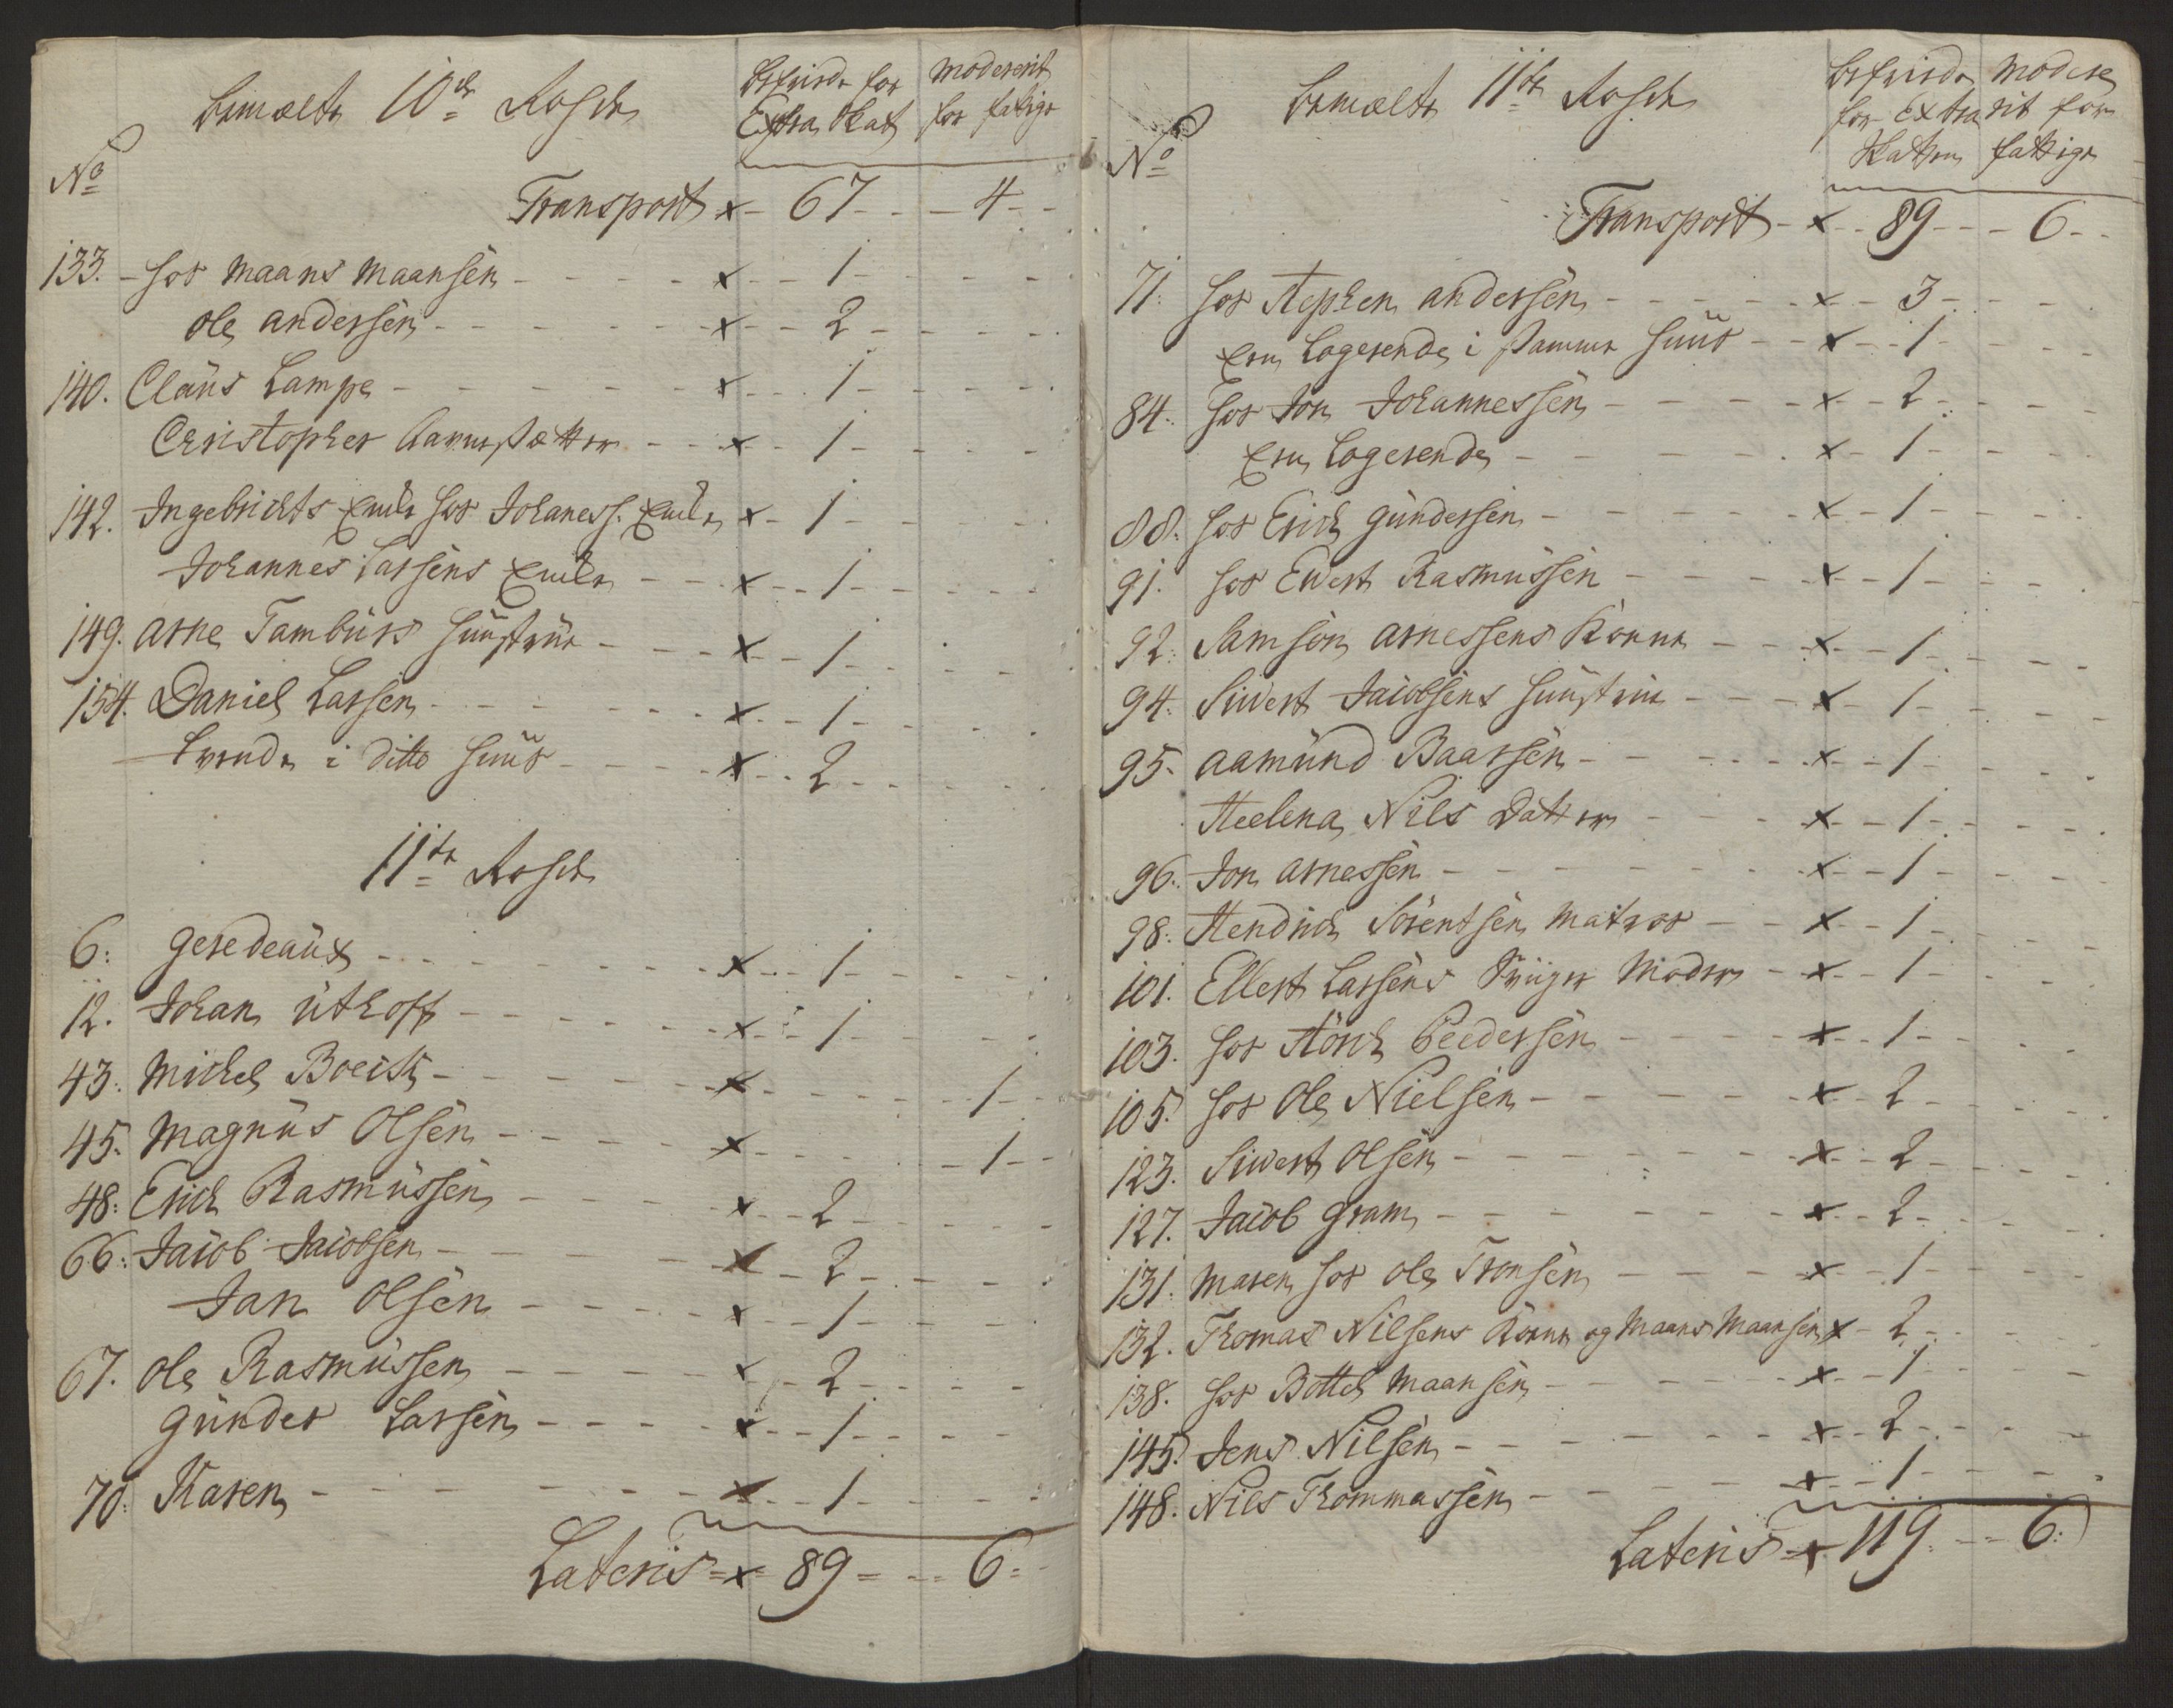 bemælte 10de Rohde
befriede for Extra Skat
moderert for fatige
No
Transport x 67 4
133. hos Maans Maansen x 1
Ole Andersen x 2
140. Claus Lampe x 1
Christopher Aarestætter x 1
142. Ingebrichts Encke hos Johaness. Encke x 1
Johannes Larsens Encke x 1
149. Arne Tamburs huustrue x 1
154. Daniel Larsen x 1
Lærende i ditto huus x 2
11te Rohde
6: Geredeaux x 1
12. Johan Uthoff x 1
43: Michel Boeisk x 1
45: Magnus Olsen x 1
48: Erich Rasmussen x 2
66: Jacob Jacobsen x 2
Jan Olsen x 1
67. Ole Rasmussen x 2
Gunder Larsen x 1
70: Karen x 1
Lateris x 89 6
bemælte 11te Rohde
befriede for Extra Skatten
moderit for fattige
No
Transport x 89 6
71: hos Stephen Andersen x 3
Een Logerende i samme huus x 1
84: hos Jon Johannessen x 2
Een Logerende x 1
88: hos Erich Gundersen x 1
91. hos Ewert Rasmussen x 1
92: Samson Arnessens Konne x 1
94. Siwert Jacobsens huustrue x 1
95. Aamund Baarsen x 1
Heelena Nils Datter x 1
96: Jon Arnessen x 1
98: Hendrich Sörentsen Matros x 1
101. Ellert Larsens Sviiger Moder x 1
103. hos Störch Peedersen x 1
105. hos Ole Nielsen x 2
123. Siwert Olsen x 2
127. Jacob Gram x 2
131. Maren hos Ole Tronsen x 1
132. Thomas Nilsens Konne og Maans Maansen x 2
138. hos Bottel Maansen x 1
145. Jens Nilsen x 2
148. Nils Thommassen x 1
Lateris x 119 6